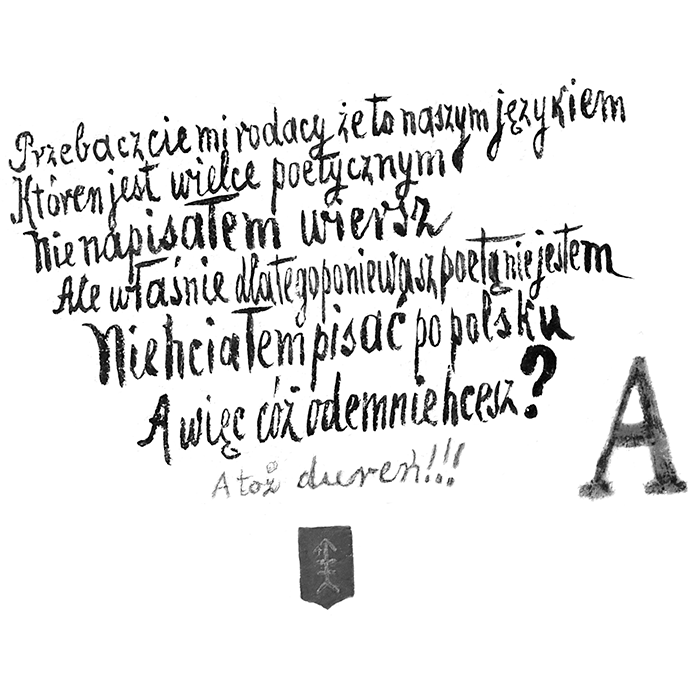 Przebaczcie mi rodacy że to naszym językiem
Któren jest wielce poetycznym
Nie napisałem wiersz
Ale właśnie dlatego poniewasz poetą nie jestem
Niehciałem pisać po polsku
A więc cóż odemnie hcesz?
A toż dureń!!!
A